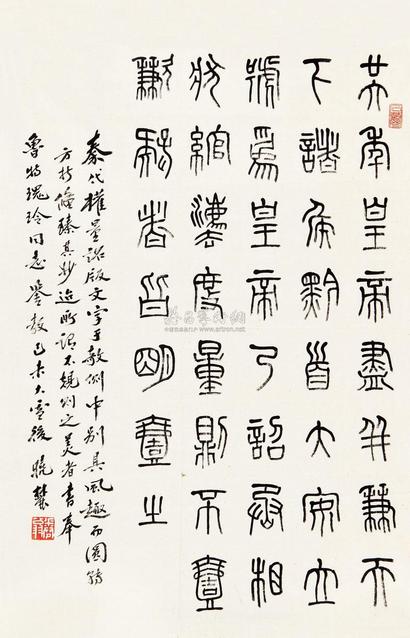 廿六年皇帝盡并兼天
下諸侯黔首大安立
號為皇帝乃詔丞相
狀綰灋度量則不壹
歉疑者皆明壹之
秦代權量詔版文字于欹側中別具風趣而圓轉
方折備臻其妙迨所謂不規則之美者書奉
魯特瑰玲同志鑒教己未大雪後